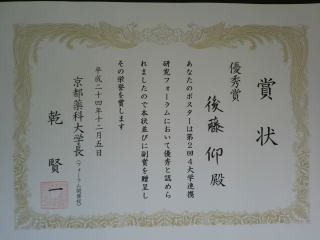 賞状
優秀賞
後藤仰殿
あなたのポスターは第2回4大学連携
研究フォーラムにおいて優秀と認めら
れましたので本状並びに副賞を贈呈し
その栄誉を賞します
平成二十四年十二月五日
京都薬科大学長(フォーラム開催校)
乾賢一